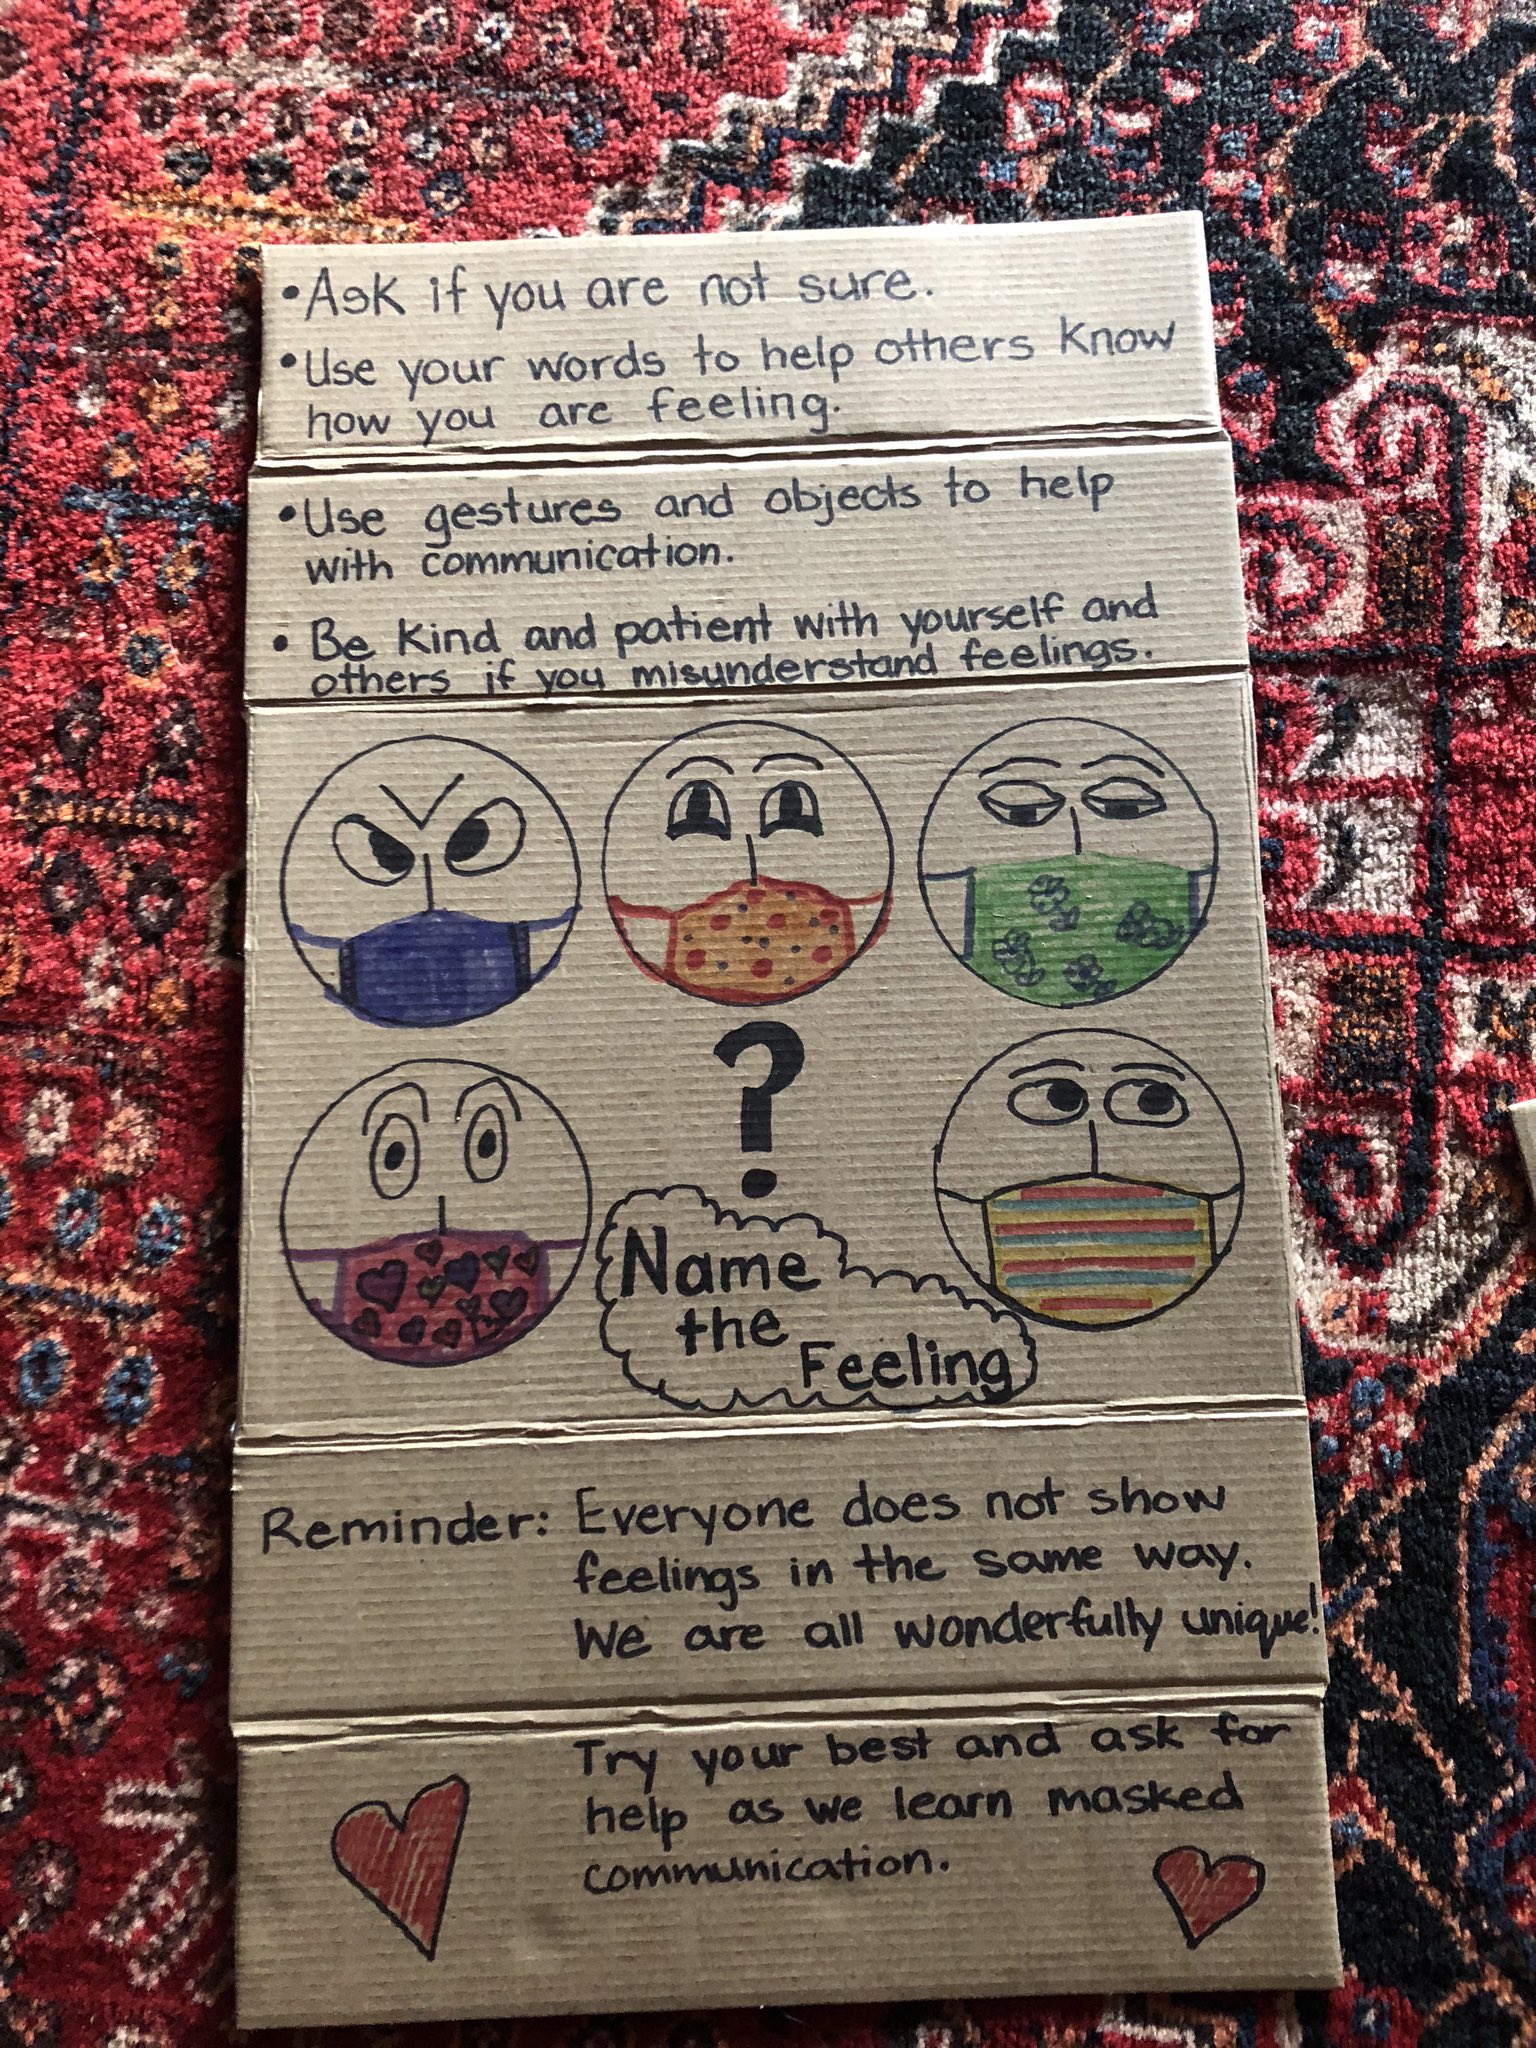 •Ask if you are not sure.
•Use your words to help others know
how you are feeling.
•Use gestures and objects to help
with communication.
• Be kind and patient with yourself and
others if you misunderstand feelings.
?
Name
the
Feeling
Reminder: Everyone does not show
feelings in the same way.
We are all wonderfully unique!
Try your best and ask for
help as we learn masked
communication.